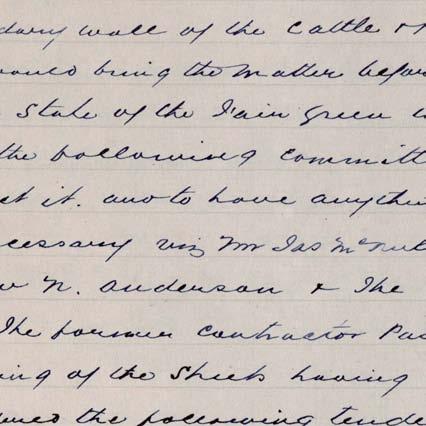 dary wall of the Cattle &
would bring the matter befor
State of the Fair Green
the following Committ
ct it. and to have anythi
cessary viz Mr Jas McNut
N. Anderson & The
The former Contractor Pa
ing of the Shicts having
the following tende